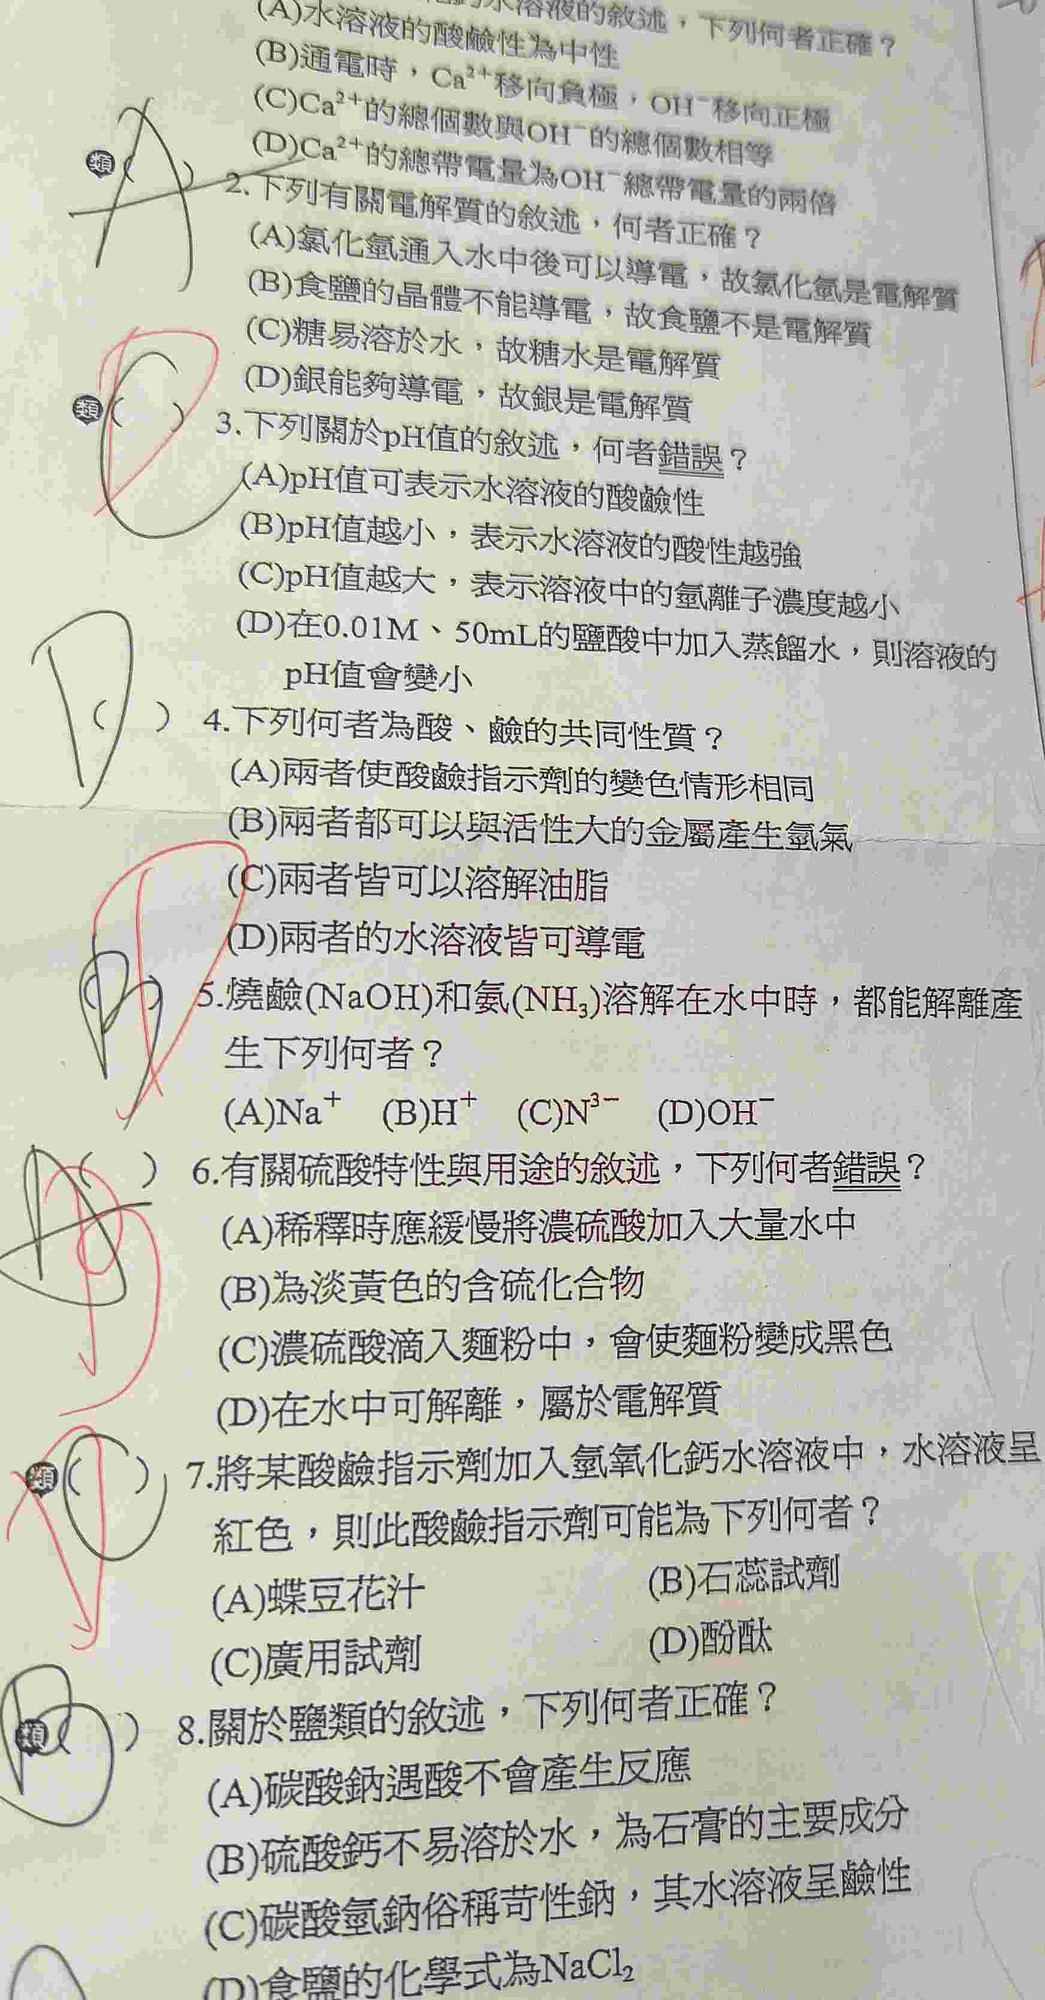 水溶液的敘述，下列何者正確？
(A)水溶液的酸鹼性為中性
(B)通電時，Ca²⁺移向負極，OH⁻移向正極
(C)Ca²⁺的總個數與OH⁻的總個數相等
(D)Ca²⁺的總帶電量為OH⁻總帶電量的兩倍
類 ( ) A 2.下列有關電解質的敘述，何者正確？
(A)氯化氫通入水中後可以導電，故氯化氫是電解質
(B)食鹽的晶體不能導電，故食鹽不是電解質
(C)糖易溶於水，故糖水是電解質
(D)銀能夠導電，故銀是電解質
類 ( ) C D 3.下列關於pH值的敘述，何者錯誤？
(A)pH值可表示水溶液的酸鹼性
(B)pH值越小，表示水溶液的酸性越強
(C)pH值越大，表示溶液中的氫離子濃度越小
(D)在0.01M、50mL的鹽酸中加入蒸餾水，則溶液的
pH值會變小
( ) D 4.下列何者為酸、鹼的共同性質？
(A)兩者使酸鹼指示劑的變色情形相同
(B)兩者都可以與活性大的金屬產生氫氣
(C)兩者皆可以溶解油脂
(D)兩者的水溶液皆可導電
( ) B D 5.燒鹼(NaOH)和氨(NH₃)溶解在水中時，都能解離產
生下列何者？
(A)Na⁺ (B)H⁺ (C)N³⁻ (D)OH⁻
( ) A B 6.有關硫酸特性與用途的敘述，下列何者錯誤？
(A)稀釋時應緩慢將濃硫酸加入大量水中
(B)為淡黃色的含硫化合物
(C)濃硫酸滴入麵粉中，會使麵粉變成黑色
(D)在水中可解離，屬於電解質
類 ( ) C D 7.將某酸鹼指示劑加入氫氧化鈣水溶液中，水溶液呈
紅色，則此酸鹼指示劑可能為下列何者？
(A)蝶豆花汁 (B)石蕊試劑
(C)廣用試劑 (D)酚酞
類 ( ) B 8.關於鹽類的敘述，下列何者正確？
(A)碳酸鈉遇酸不會產生反應
(B)硫酸鈣不易溶於水，為石膏的主要成分
(C)碳酸氫鈉俗稱苛性鈉，其水溶液呈鹼性
(D)食鹽的化學式為NaCl₂